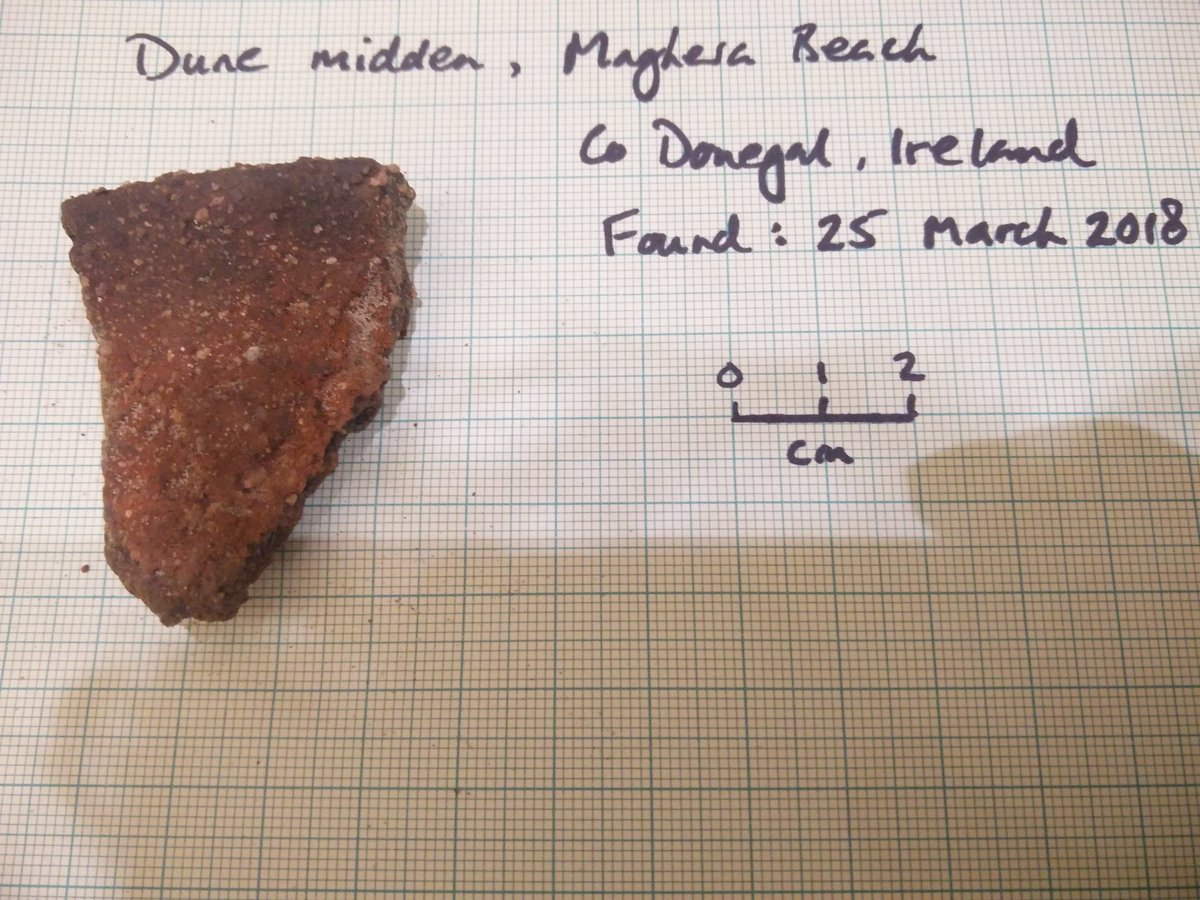 Dune midden, Maghera Beach
Co Donegal, Ireland
Found: 25 March 2018
0 1 2
cm